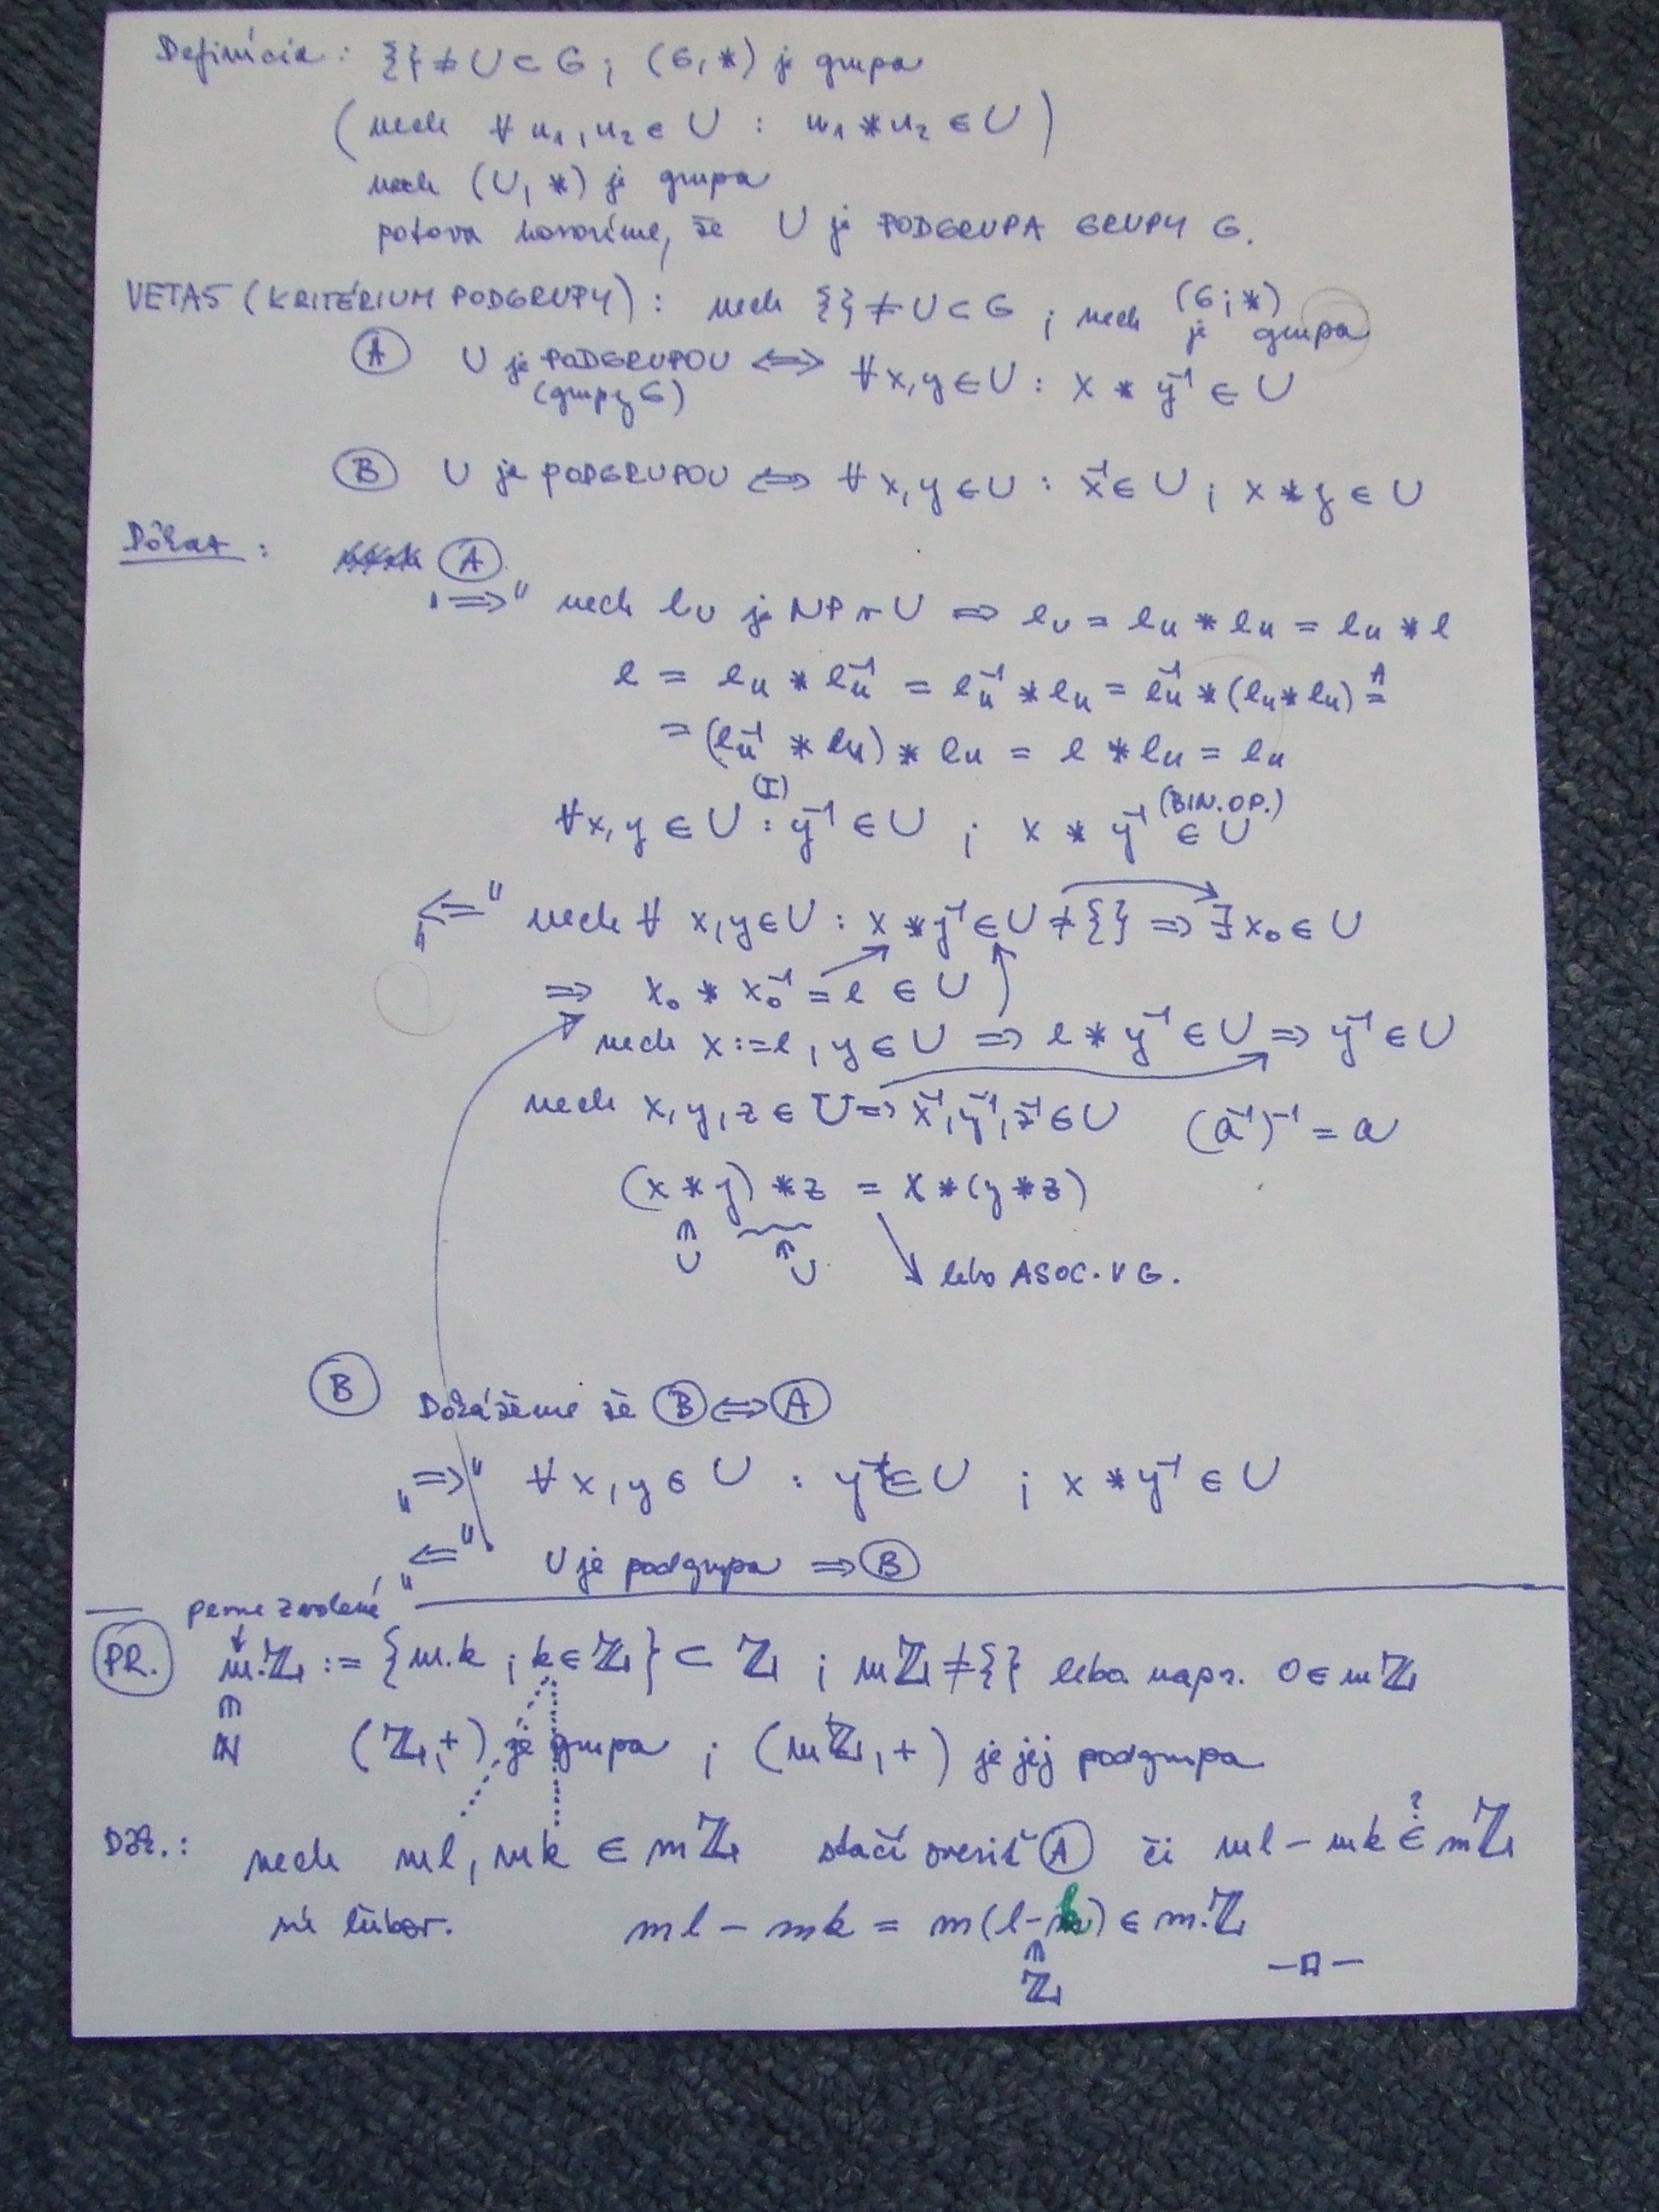 Definícia: {} ≠ U ⊂ G ; (G,*) je grupa
(nech ∀ u₁,u₂ ∈ U : u₁ * u₂ ∈ U)
nech (U,*) je grupa
potom hovoríme, že U je PODGRUPA GRUPY G.
VETA 5 (KRITÉRIUM PODGRUPY): nech {} ≠ U ⊂ G ; nech (G;*) je grupa
Ⓐ U je PODGRUPOU ⟺ ∀ x,y ∈ U : x * y⁻¹ ∈ U
(grupy G)
Ⓑ U je PODGRUPOU ⟺ ∀ x,y ∈ U : x⁻¹ ∈ U ; x * y ∈ U
Dôkaz : Ⓐ
„⟹" nech e_U je NP v U ⟹ e_U = e_U * e_U = e_U * e
e = e_U * e_U⁻¹ = e_U⁻¹ * e_U = e_U⁻¹ * (e_U * e_U) =ᴬ
= (e_U⁻¹ * e_U) * e_U = e * e_U = e_U
(I) (BIN.OP.)
∀x,y ∈ U : y⁻¹ ∈ U ; x * y⁻¹ ∈ U
„⟸" nech ∀ x,y ∈ U : x * y⁻¹ ∈ U ≠ {} ⟹ ∃ x₀ ∈ U
⟹ x₀ * x₀⁻¹ = e ∈ U
nech x := e, y ∈ U ⟹ e * y⁻¹ ∈ U ⟹ y⁻¹ ∈ U
nech x,y,z ∈ U ⟹ x⁻¹,y⁻¹,z⁻¹ ∈ U (a⁻¹)⁻¹ = a
(x * y) * z = x * (y * z)
∈ U ∈ U lebo ASOC. V G.
Ⓑ Dokážeme že Ⓑ ⟺ Ⓐ
„⟹" ∀ x,y ∈ U : y⁻¹ ∈ U ; x * y⁻¹ ∈ U
„⟸" U je podgrupa ⟹ Ⓑ
pevne zvolené
PR. m.ℤ := {m.k ; k ∈ ℤ} ⊂ ℤ ; mℤ ≠ {} lebo napr. 0 ∈ mℤ
∈ ℕ (ℤ,+) je grupa ; (mℤ,+) je jej podgrupa
Dôk.: nech ml, mk ∈ mℤ stačí overiť Ⓐ či ml - mk ∈? mℤ
sú ľubov. ml - mk = m(l-k) ∈ m.ℤ
∈ ℤ